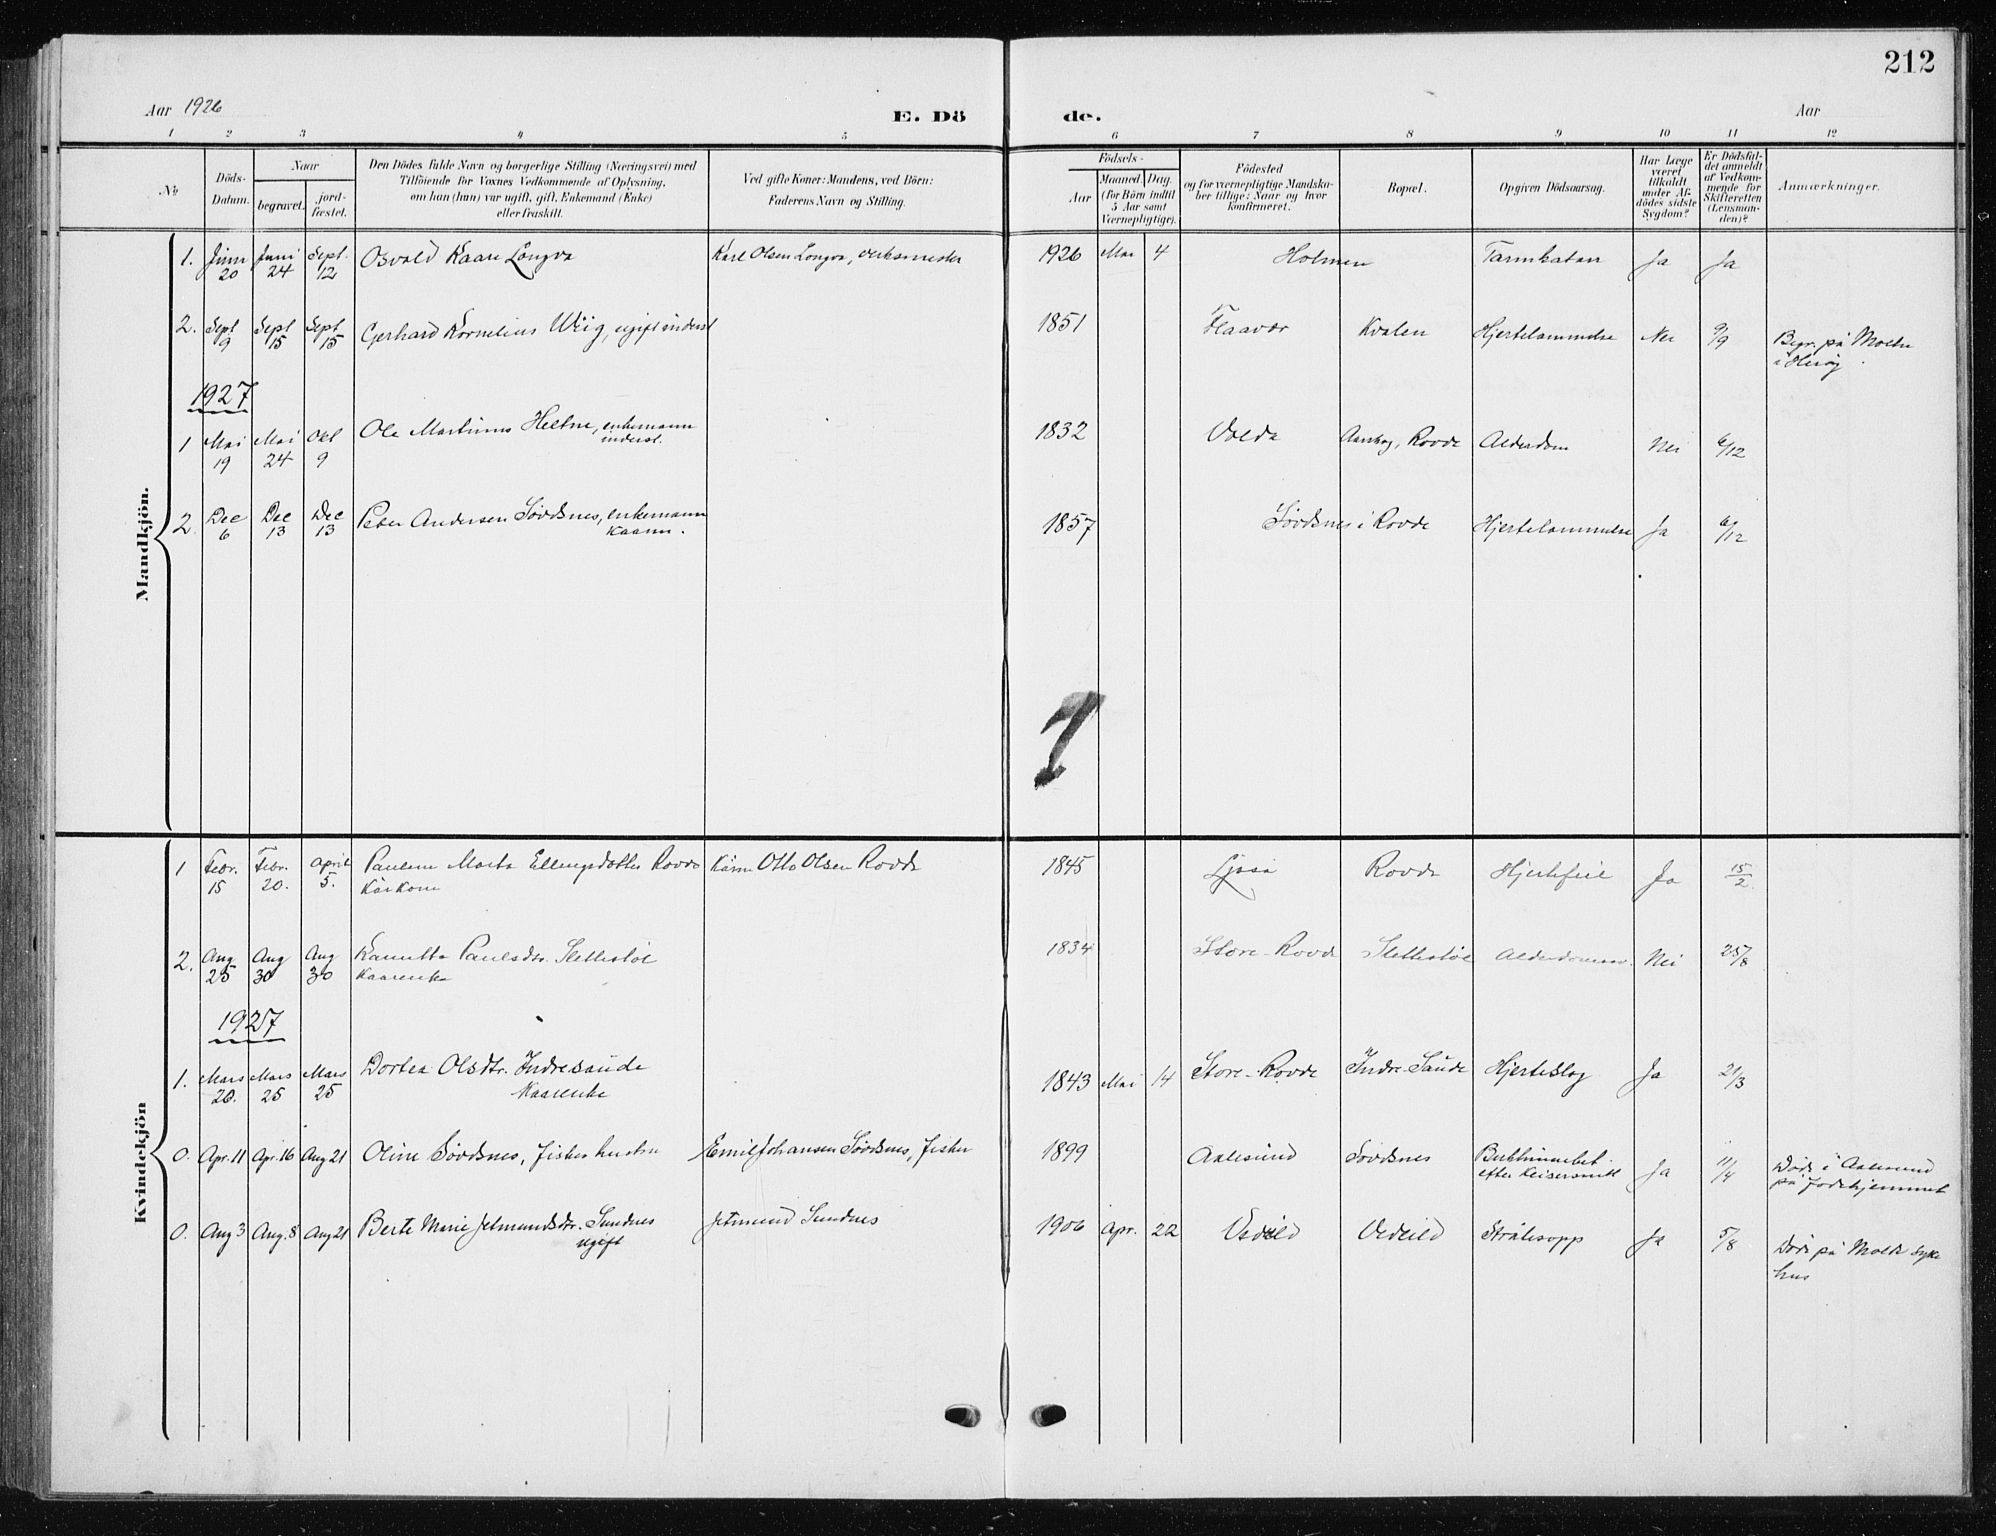 212
Aar 1926
E. Dö
de.
Aar
1 2 3 4 5
6 7 8 9 10 11 12
No
Döds-Datum.
Naar
begravet.
jordfæstet.
Den Dödes fulde Navn og borgerlige Stilling (Næringsvei) med
Tilföiende for Voxnes Vedkommende af Oplysning,
om han (hun) var ugift, gift, Enkemand (Enke)
eller fraskilt.
Ved gifte Koner: Mandens, ved Börn:
Faderens Navn og Stilling.
Födsels-
Aar
Maaned. Dag.
(for Börn indtil
5 Aar samt
Værnepligtige).
Födested
og for værnepligtige Mandskaber
tillige: Naar og hvor
konfirmeret.
Bopæl.
Opgiven Dödsaarsag.
Har Læge
været
tilkaldt
under Afdödes
sidste
Sygdom?
Er Dödsfaldet
anmeldt
af Vedkommende
for
Skifteretten
(Lensmanden)?
Anmærkninger.
Mandkjön.
1. Juni 20 Juni 24 Sept. 12 Osvald Kaare Longva Karl Olsen Longva, verksmester 1926 Mai 4 Holmen Tarmkatarr Ja Ja
2. Sept 9 Sept 15 Sept 15 Gerhard Kornelius Wiig, ugift inderst 1851 Flaavær Kvalen Hjertelammelse Nei 9/9 Begr. på Molta
i Herøy.
1927
1 Mai 19 Mai 24 Okt 9 Ole Martinus Heltne, enkemann
inderst. 1832 Volda Aarskog, Rovde Alderdom Nei 6/12
2. Dec 6 Dec 13 Dec 13 Peter Andersen Søvdsnes, enkemann
Kaarm. 1857 Søvdsnes i Rovde Hjertelammelse Ja 6/12
Kvindekjön
1 Febr. 15 Febr. 20. April 5. Pauline Marta Ellingsdotter Rovde
Kårkone Kårm. Otto Olsen Rovde 1845 Ljøså Rovde Hjertefeil Ja 15/2
2. Aug 25 Aug 30 Aug 30 Paulsdtr. Slettestøl
Kaarenke 1834 Store-Rovde Slettestøl Alderdomssv. Nei 25/8
1927
1. Mars 20. Mars 25 Mars 25 Dortea Olsdtr. Indresaude
Kaarenke 1843 Mai 14 Store-Rovde Indre-Saude Hjerteslag Ja 21/3
0. Apr. 11 Apr. 16 Aug 21 Oline Søvdsnes, fisker hustru Emil Johansen Søvdsnes, fisker 1899 Aalesund Søvdsnes Bukhinnebet.
efter keisersnitt Ja 11/4 Døde i Aalesund
på fødehjemmet
0. Aug 3 Aug. 8 Aug 21 Berte Marie Jetmundsdtr. Sundnes
ugift Jetmund Sundnes 1906 Apr. 22 Vedeild Vedeild Strålesopp Ja 5/8 Døde på Molde syke
hus